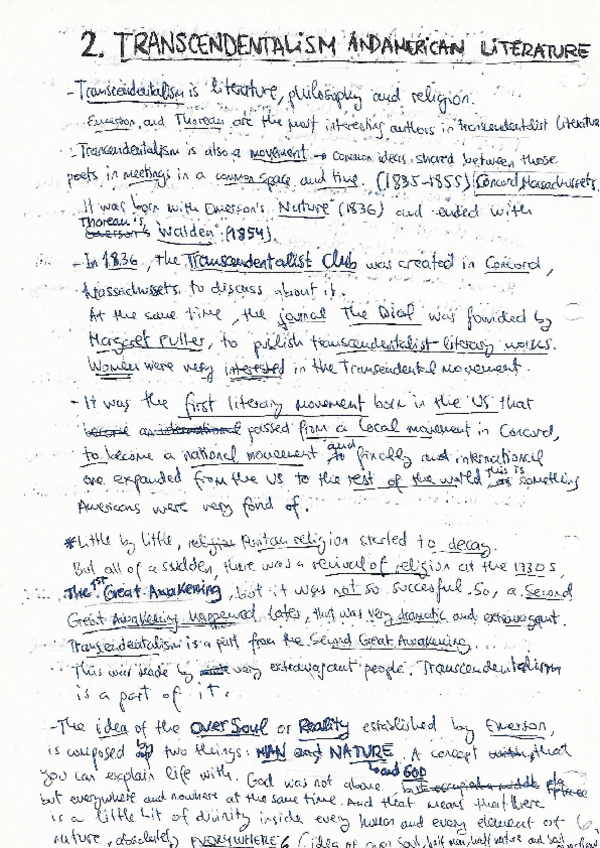 2. TRANSCENDENTALISM AND AMERICAN LITERATURE
- Transcendentalism is literature, philosophy and religion.
Emerson and Thoreau are the most interesting authors in transcendentalist literature
- Trancendentalism is also a movement → common ideas shared between those
poets in meetings in a common space and time. (1835-1855) Concord, Massachussets,
It was born with Emerson's Nature (1836) and ended with
Thoreau's
Emerson's "Walden" (1854).
- In 1836, the Transcendentalist Club was created in Concord,
Massachussets to discuss about it.
At the same time, the journal The Dial was founded by
Margaret Fuller, to publish transcendentalist literary works.
Women were very interested in the Transcendental movement.
- It was the first literary movement born in the US that
became an international passed from a local movement in Concord,
to become a national movement and to finally and international
one expanded from the US to the rest of the world. This is something
Americans were very fond of.
*Little by little, religion Puritan religion started to decay.
But all of a sudden, there was a revival of religion at the 1730s
The 1st Great Awakening, but it was not so succesful. So, a Second
Great Awakening happened later, that was very dramatic and extravagant.
Transcendentalism is a part from the Second Great Awakening.
This was made by very extravagant people. Transcendentalism
is a part of it.
- The idea of the Over Soul or Reality established by Emerson,
is composed by two things: MAN and NATURE. A concept that
and GOD
you can explain life with. God was not above,
but everywhere and nowhere at the same time. And that means that there
is a little bit of divinity inside every human and every element of
nature, absolutely EVERYWHERE (idea of over Soul, half man, half nature and